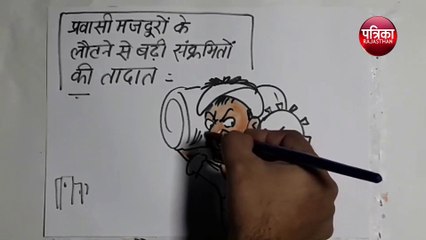 पत्रिका
RAJASTHAN
प्रवासी मजदूरों के
लौटने से बढ़ी संक्रमितों
की तादात :